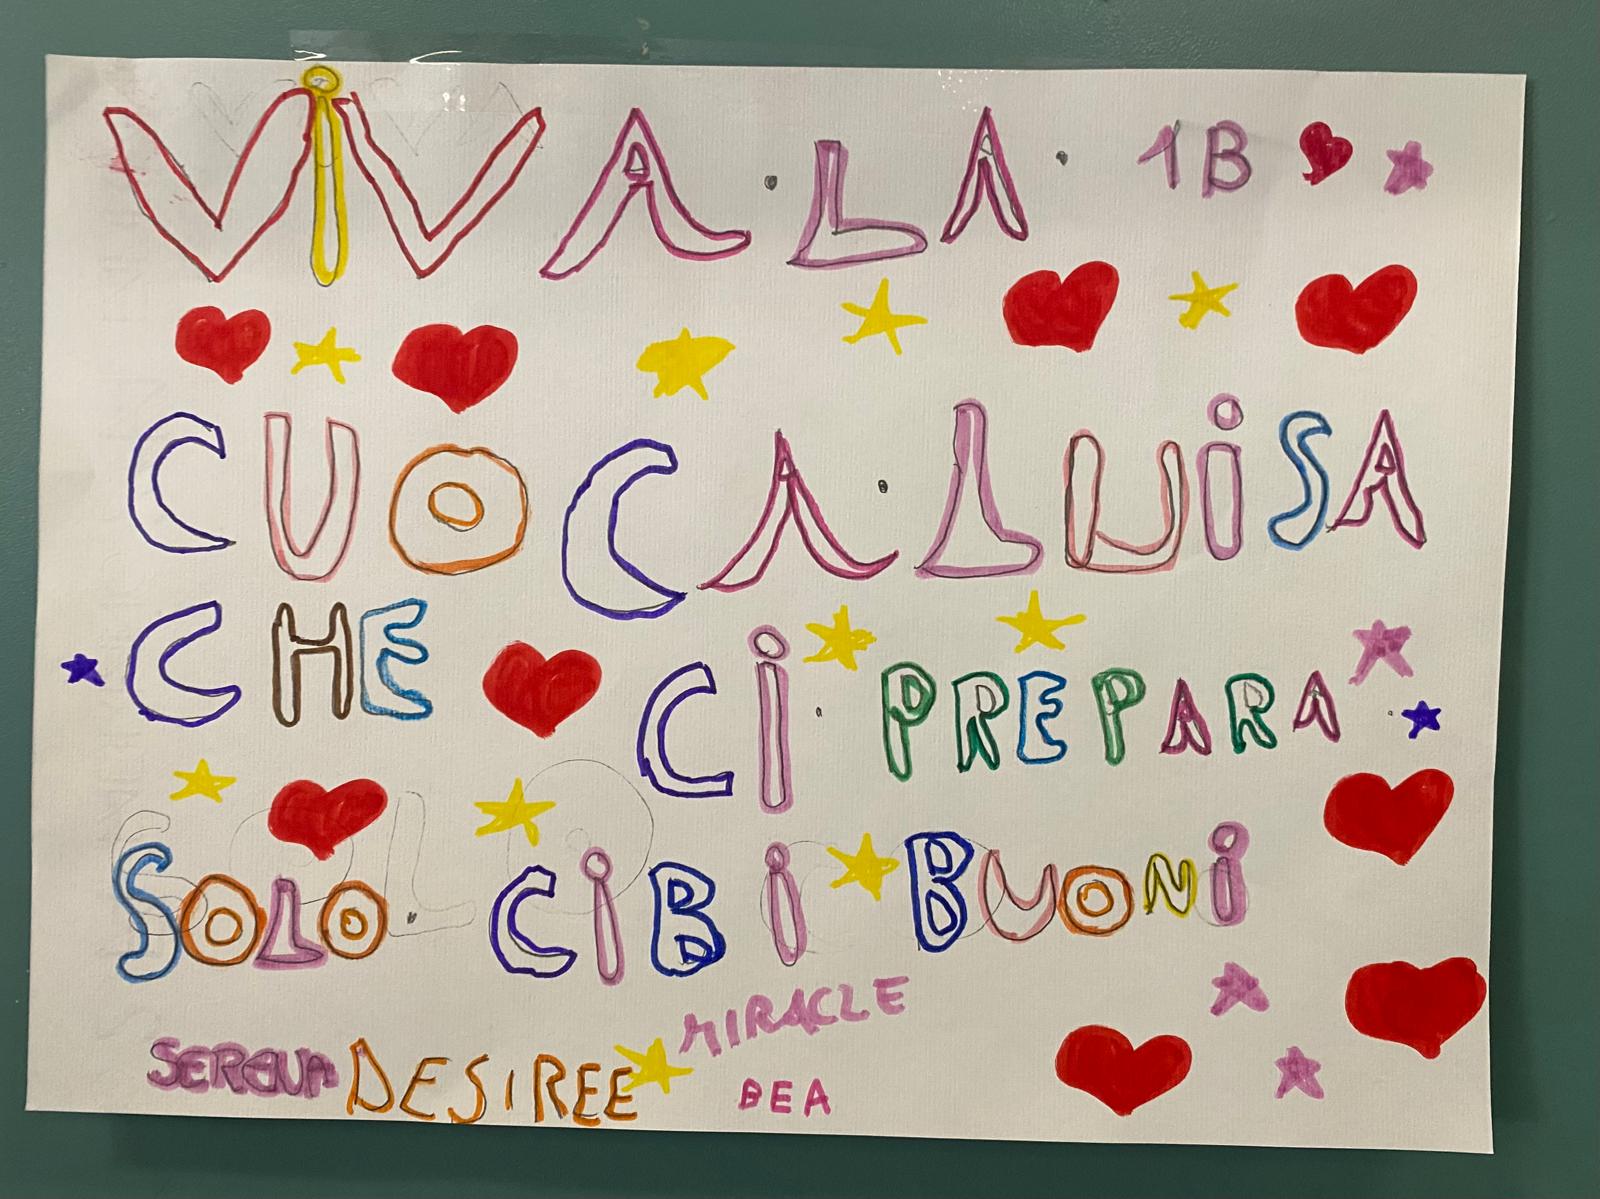 VIVA LA 1B
CUOCA LUISA
CHE CI PREPARA
SOLO CIBI BUONI
MIRACLE
SERENA DESIREE BEA